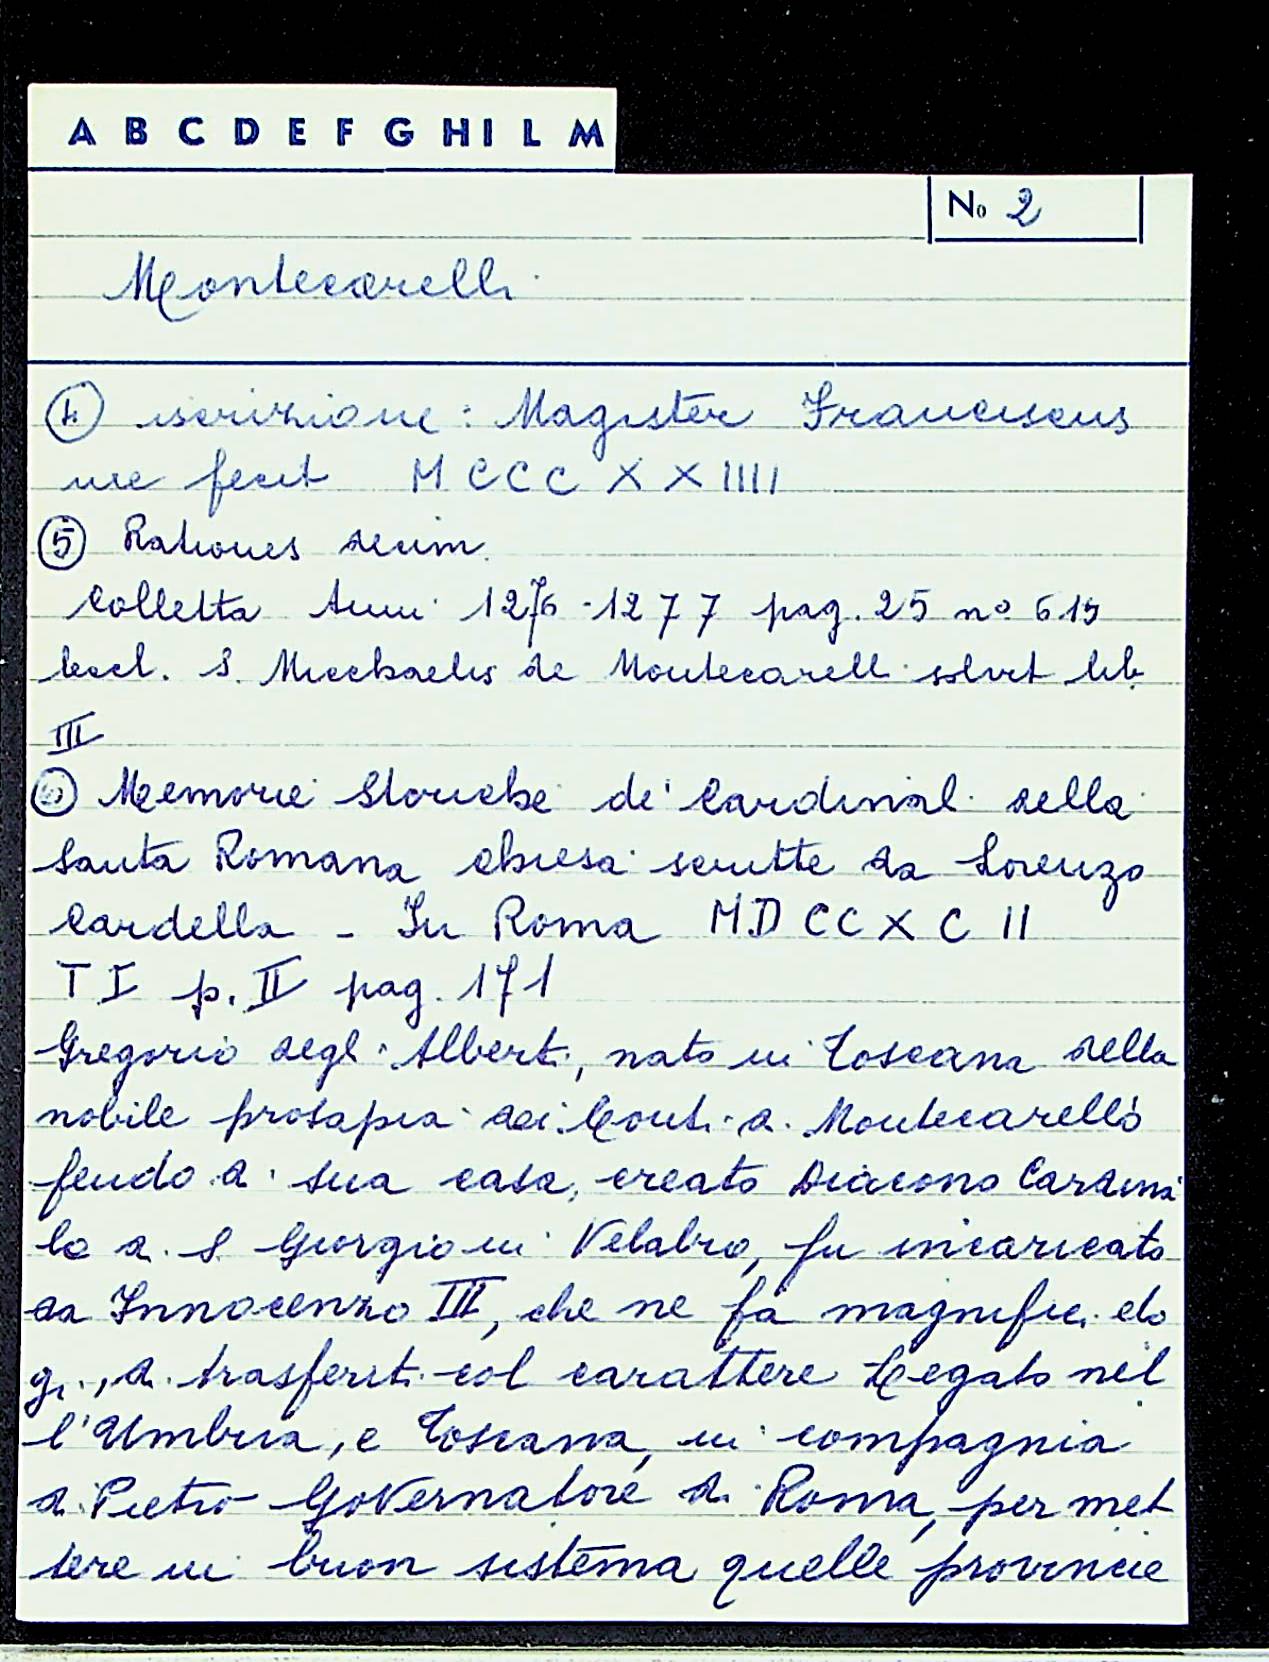 A B C D E F G H I L M
No 2
Montecarelli
④ iscrizione: Magister Franciscus
me fecit M CCC X X IIII
⑤ Rationes decim.
Colletta Anni 1276-1277 pag. 25 nº 619
Eccl. S. Michaelis de Montecarelli solvit lib.
III
⑥ Memorie Storiche de' Cardinali della
Santa Romana chiesa scritte da Lorenzo
Cardella - In Roma M.D CC X C II
T I p. II pag. 171
Gregorio degli Alberti, nato in Toscana della
nobile prosapia dei Conti di Montecarello
feudo di sua casa, creato Diacono Cardina
le di S Giorgio in Velabro, fu incaricato
da Innocenzo III, che ne fa magnifici elo
gi, di trasferiti col carattere Legato nel
l'Umbria, e Toscana, in compagnia
di Pietro Governatore di Roma, per met
tere in buon sistema quelle provincie